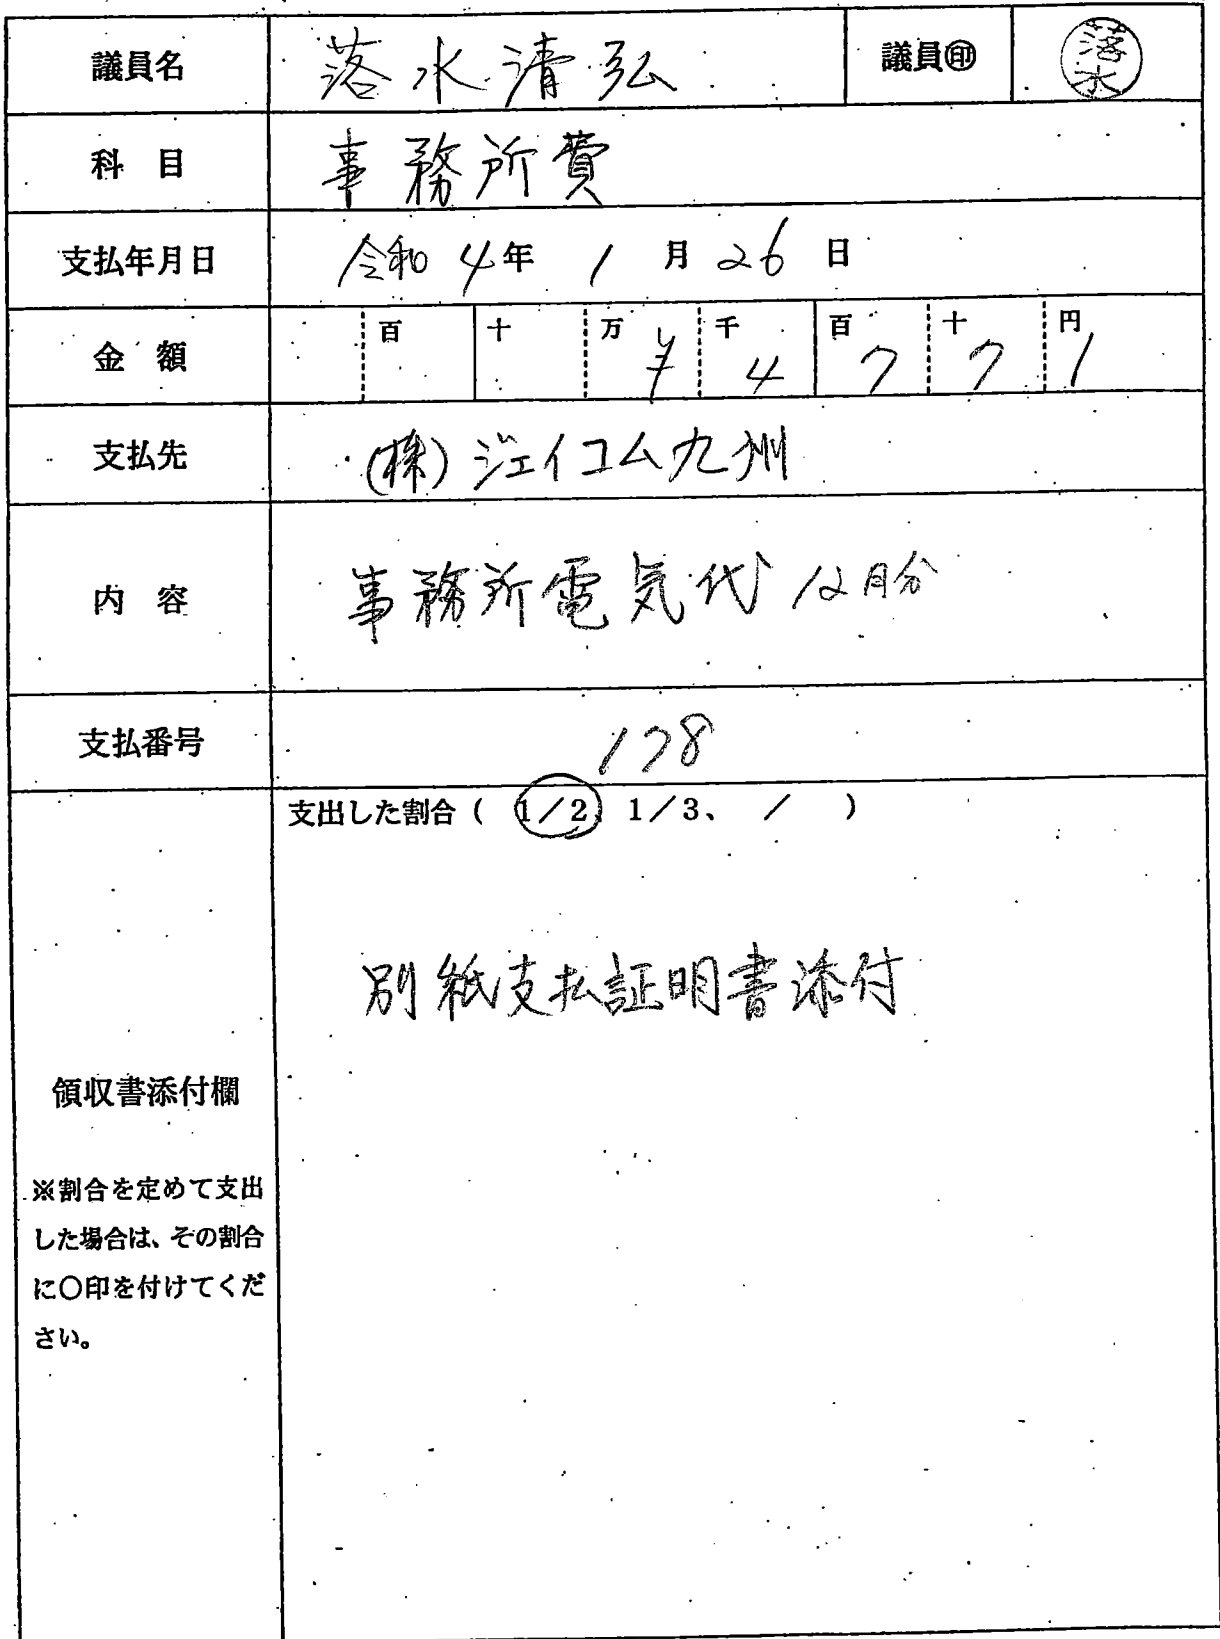 議員名 落水清弘 議員㊞ 落水
科 目 事務所費
支払年月日 令和 4年 1 月 26 日
金 額 百 十 万 ¥ 千 4 百 7 十 7 円 1
支払先 (株)ジェイコム九州
内 容 事務所電気代 12月分
支払番号 178
支出した割合 ( 1/2 1/3、 / )
別紙支払証明書添付
領収書添付欄
※割合を定めて支出
した場合は、その割合
に〇印を付けてくだ
さい。